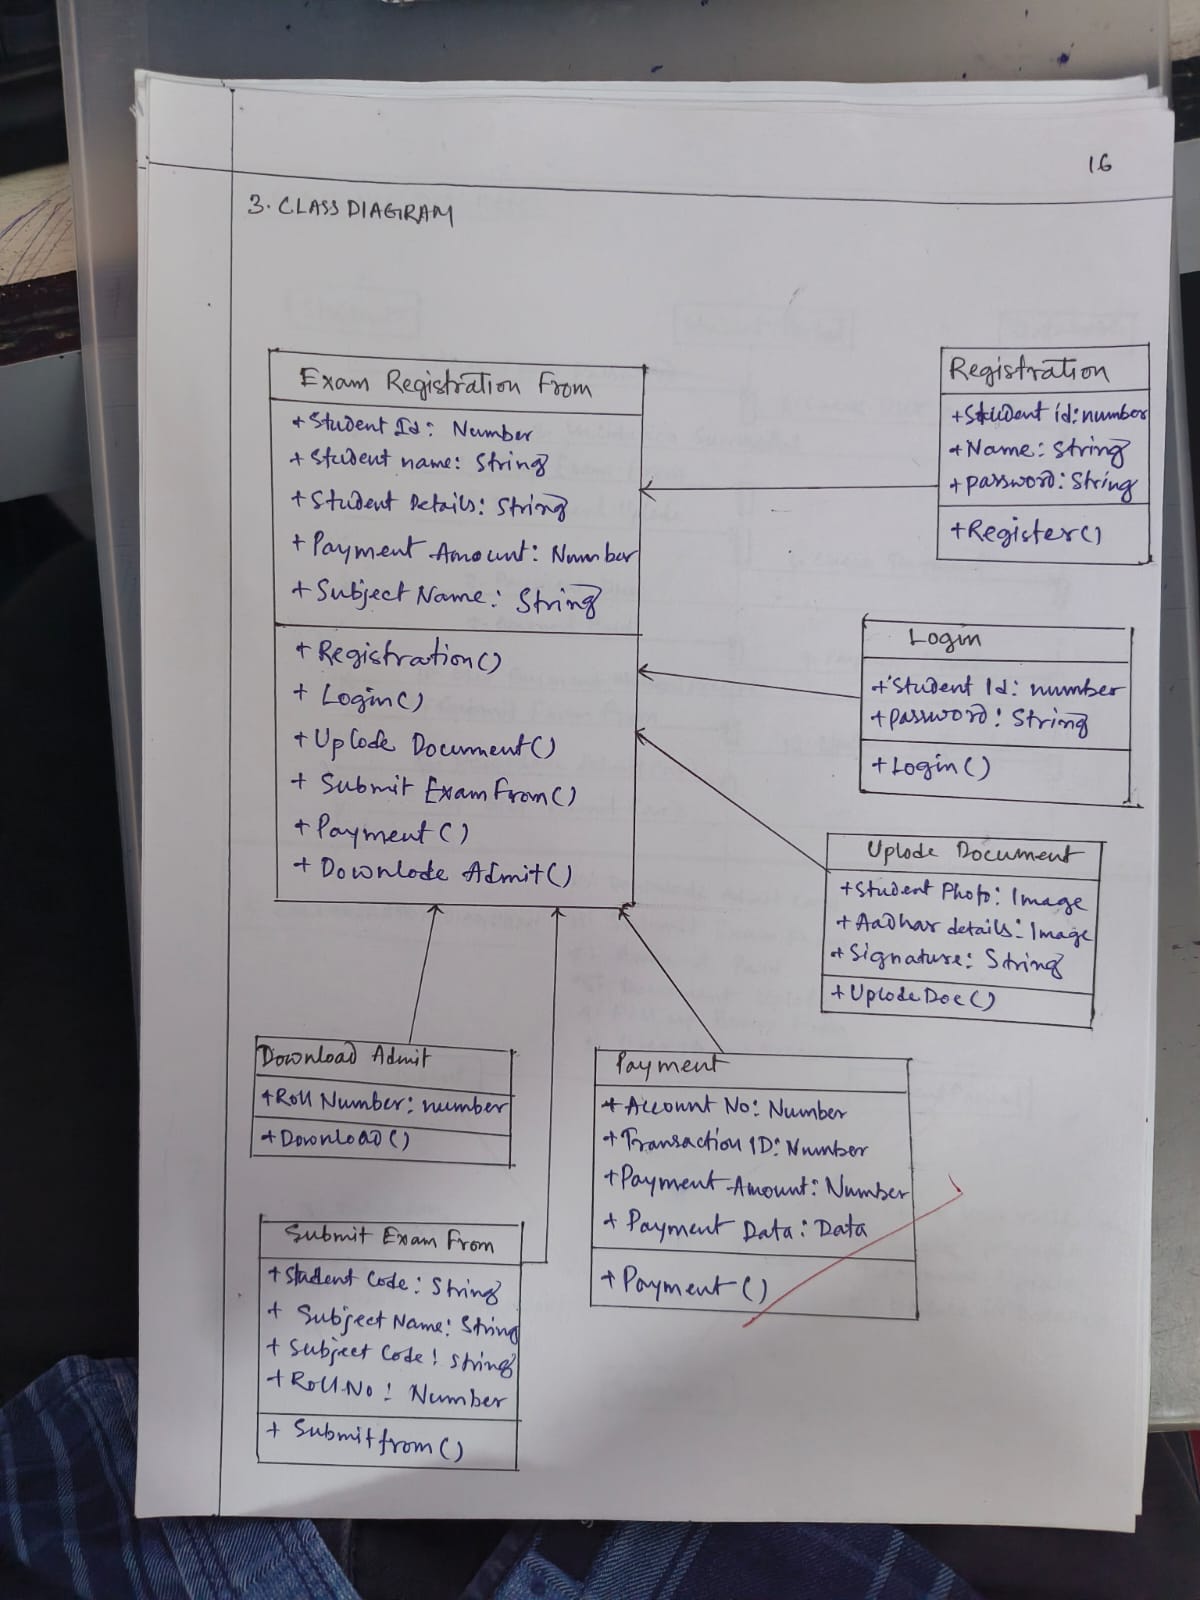 16
3. CLASS DIAGRAM
Exam Registration From
+ Student Id: Number
+ Student name: String
+ Student Details: String
+ Payment Amount: Number
+ Subject Name: String
+ Registration()
+ Login()
+ Uplode Document()
+ Submit Exam From()
+ Payment()
+ Downlode Admit()
Registration
+ Student id: number
+ Name: String
+ password: String
+ Register()
Login
+ Student Id: number
+ password: String
+ Login()
Uplode Document
+ Student Photo: Image
+ Aadhar details: Image
+ Signature: String
+ Uplode Doc()
Download Admit
+ Roll Number: number
+ Download()
Payment
+ Account No: Number
+ Transaction ID: Number
+ Payment Amount: Number
+ Payment Data: Data
+ Payment()
Submit Exam From
+ Student Code: String
+ Subject Name: String
+ Subject Code: String
+ Roll No: Number
+ Submit from()